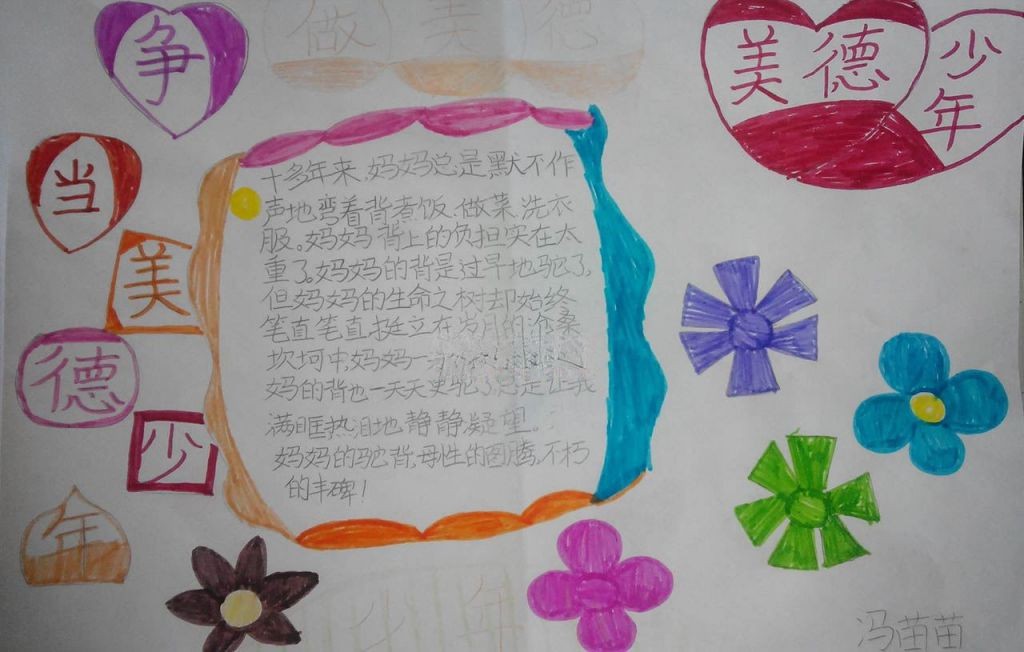 做美德
美德少年
争当美德少年
十多年来,妈妈总是默不作
声地弯着背,煮饭、做菜、洗衣
服。妈妈背上的负担实在太
重了,妈妈的背是过早地驼了,
但妈妈的生命之树却始终
笔直笔直挺立在岁月的沧桑
坎坷中,妈妈一
妈妈的背也一天天更驼了,总是让我
满眶热泪地静静凝望。
妈妈的驼背,母性的图腾,不朽
的丰碑!
少年
冯苗苗